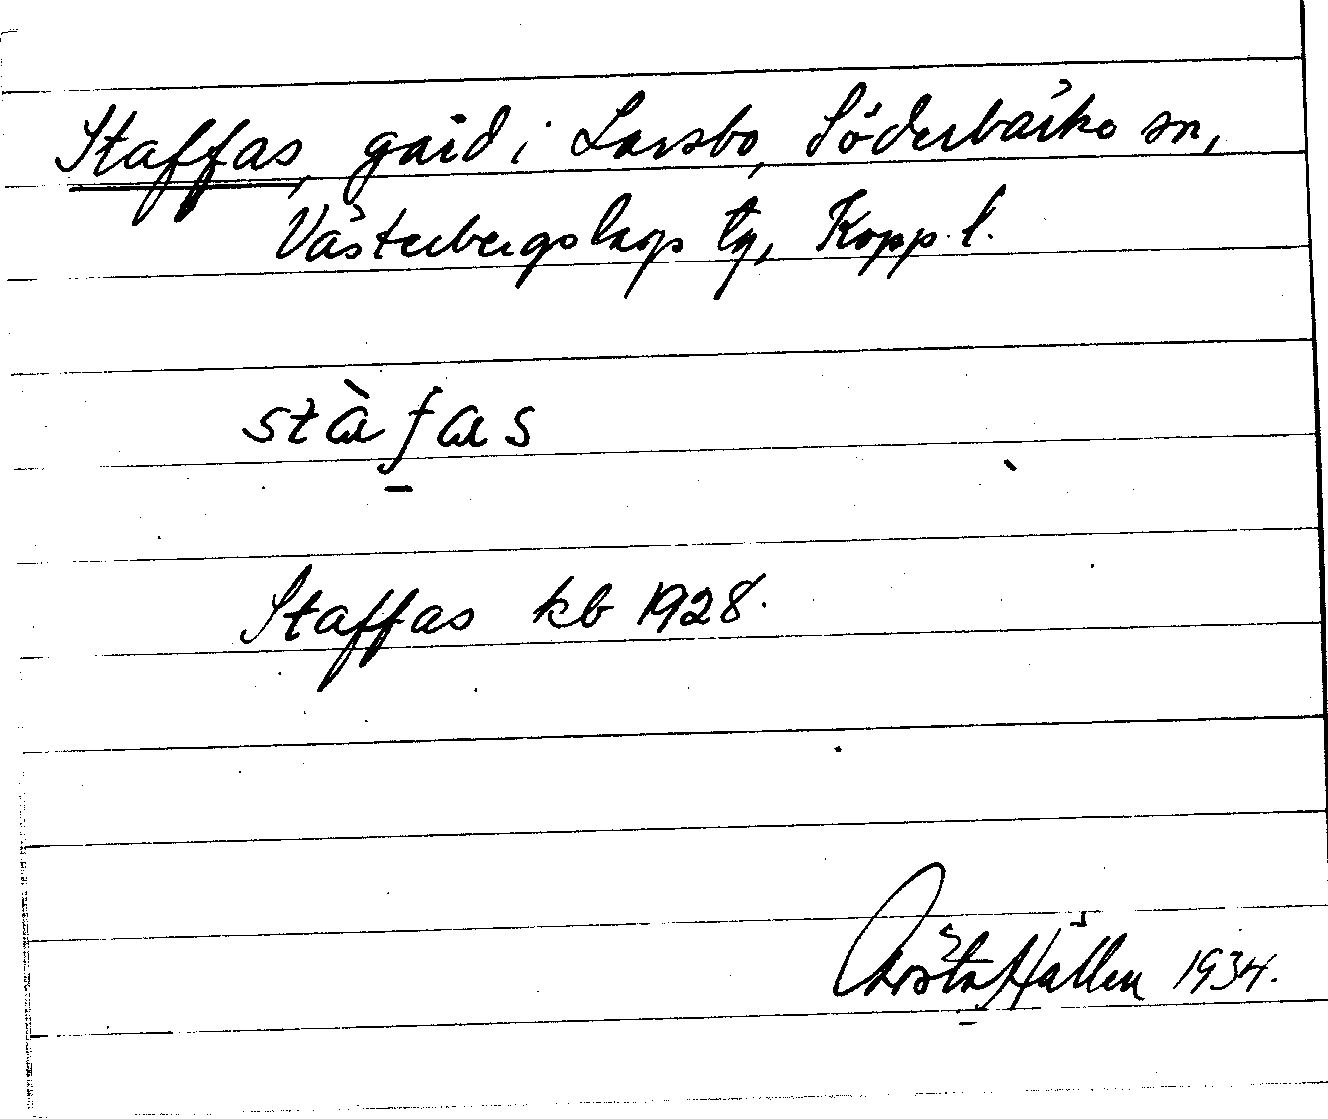 Staffas, gård i Larsbo, Söderbärke sn,
Västerbergslags tg, Kopp. l.
stàf̱as
Staffas kb 1928.
Hällen 1934.